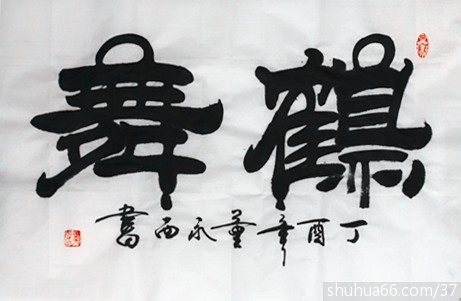 鶴舞
丁酉年董永西書
shuhua66.com/37